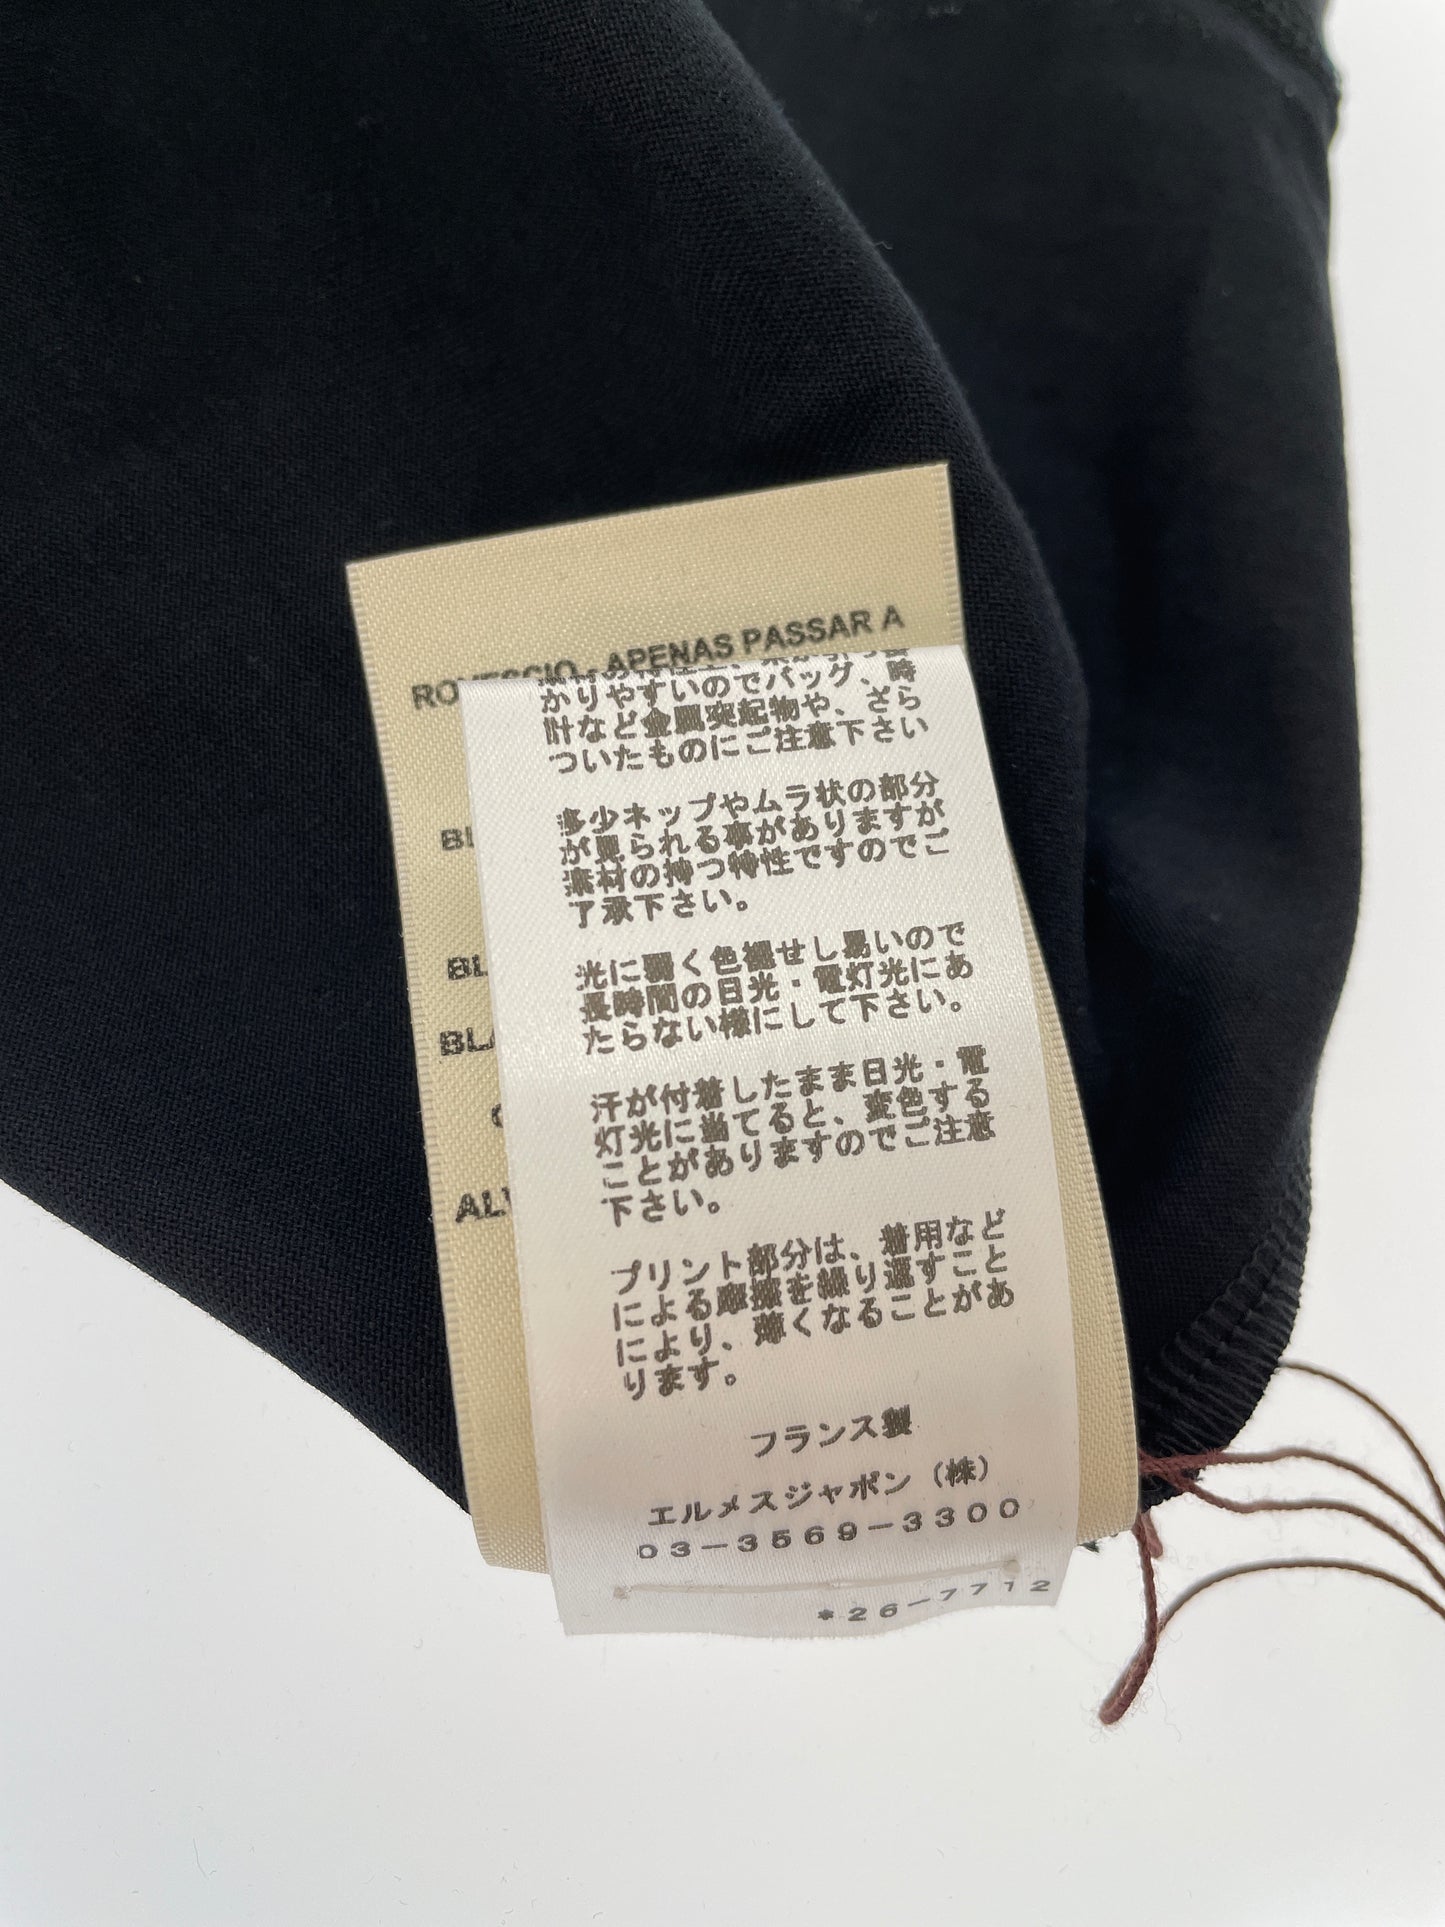 ROVESCIO - APENAS PASSAR A
かりやすいのでバッグ、時
計など金属突起物や、ざら
ついたものにご注意下さい
多少ネップやムラ状の部分
が見られる事がありますが
素材の持つ特性ですのでご
了承下さい。
光に弱く色褪せし易いので
長時間の日光・電灯光にあ
たらない様にして下さい。
汗が付着したまま日光・電
灯光に当てると、変色する
ことがありますのでご注意
下さい。
プリント部分は、着用など
による摩擦を繰り返すこと
により、薄くなることがあ
ります。
フランス製
エルメスジャポン（株）
03-3569-3300
*26-7712
BL
BLA